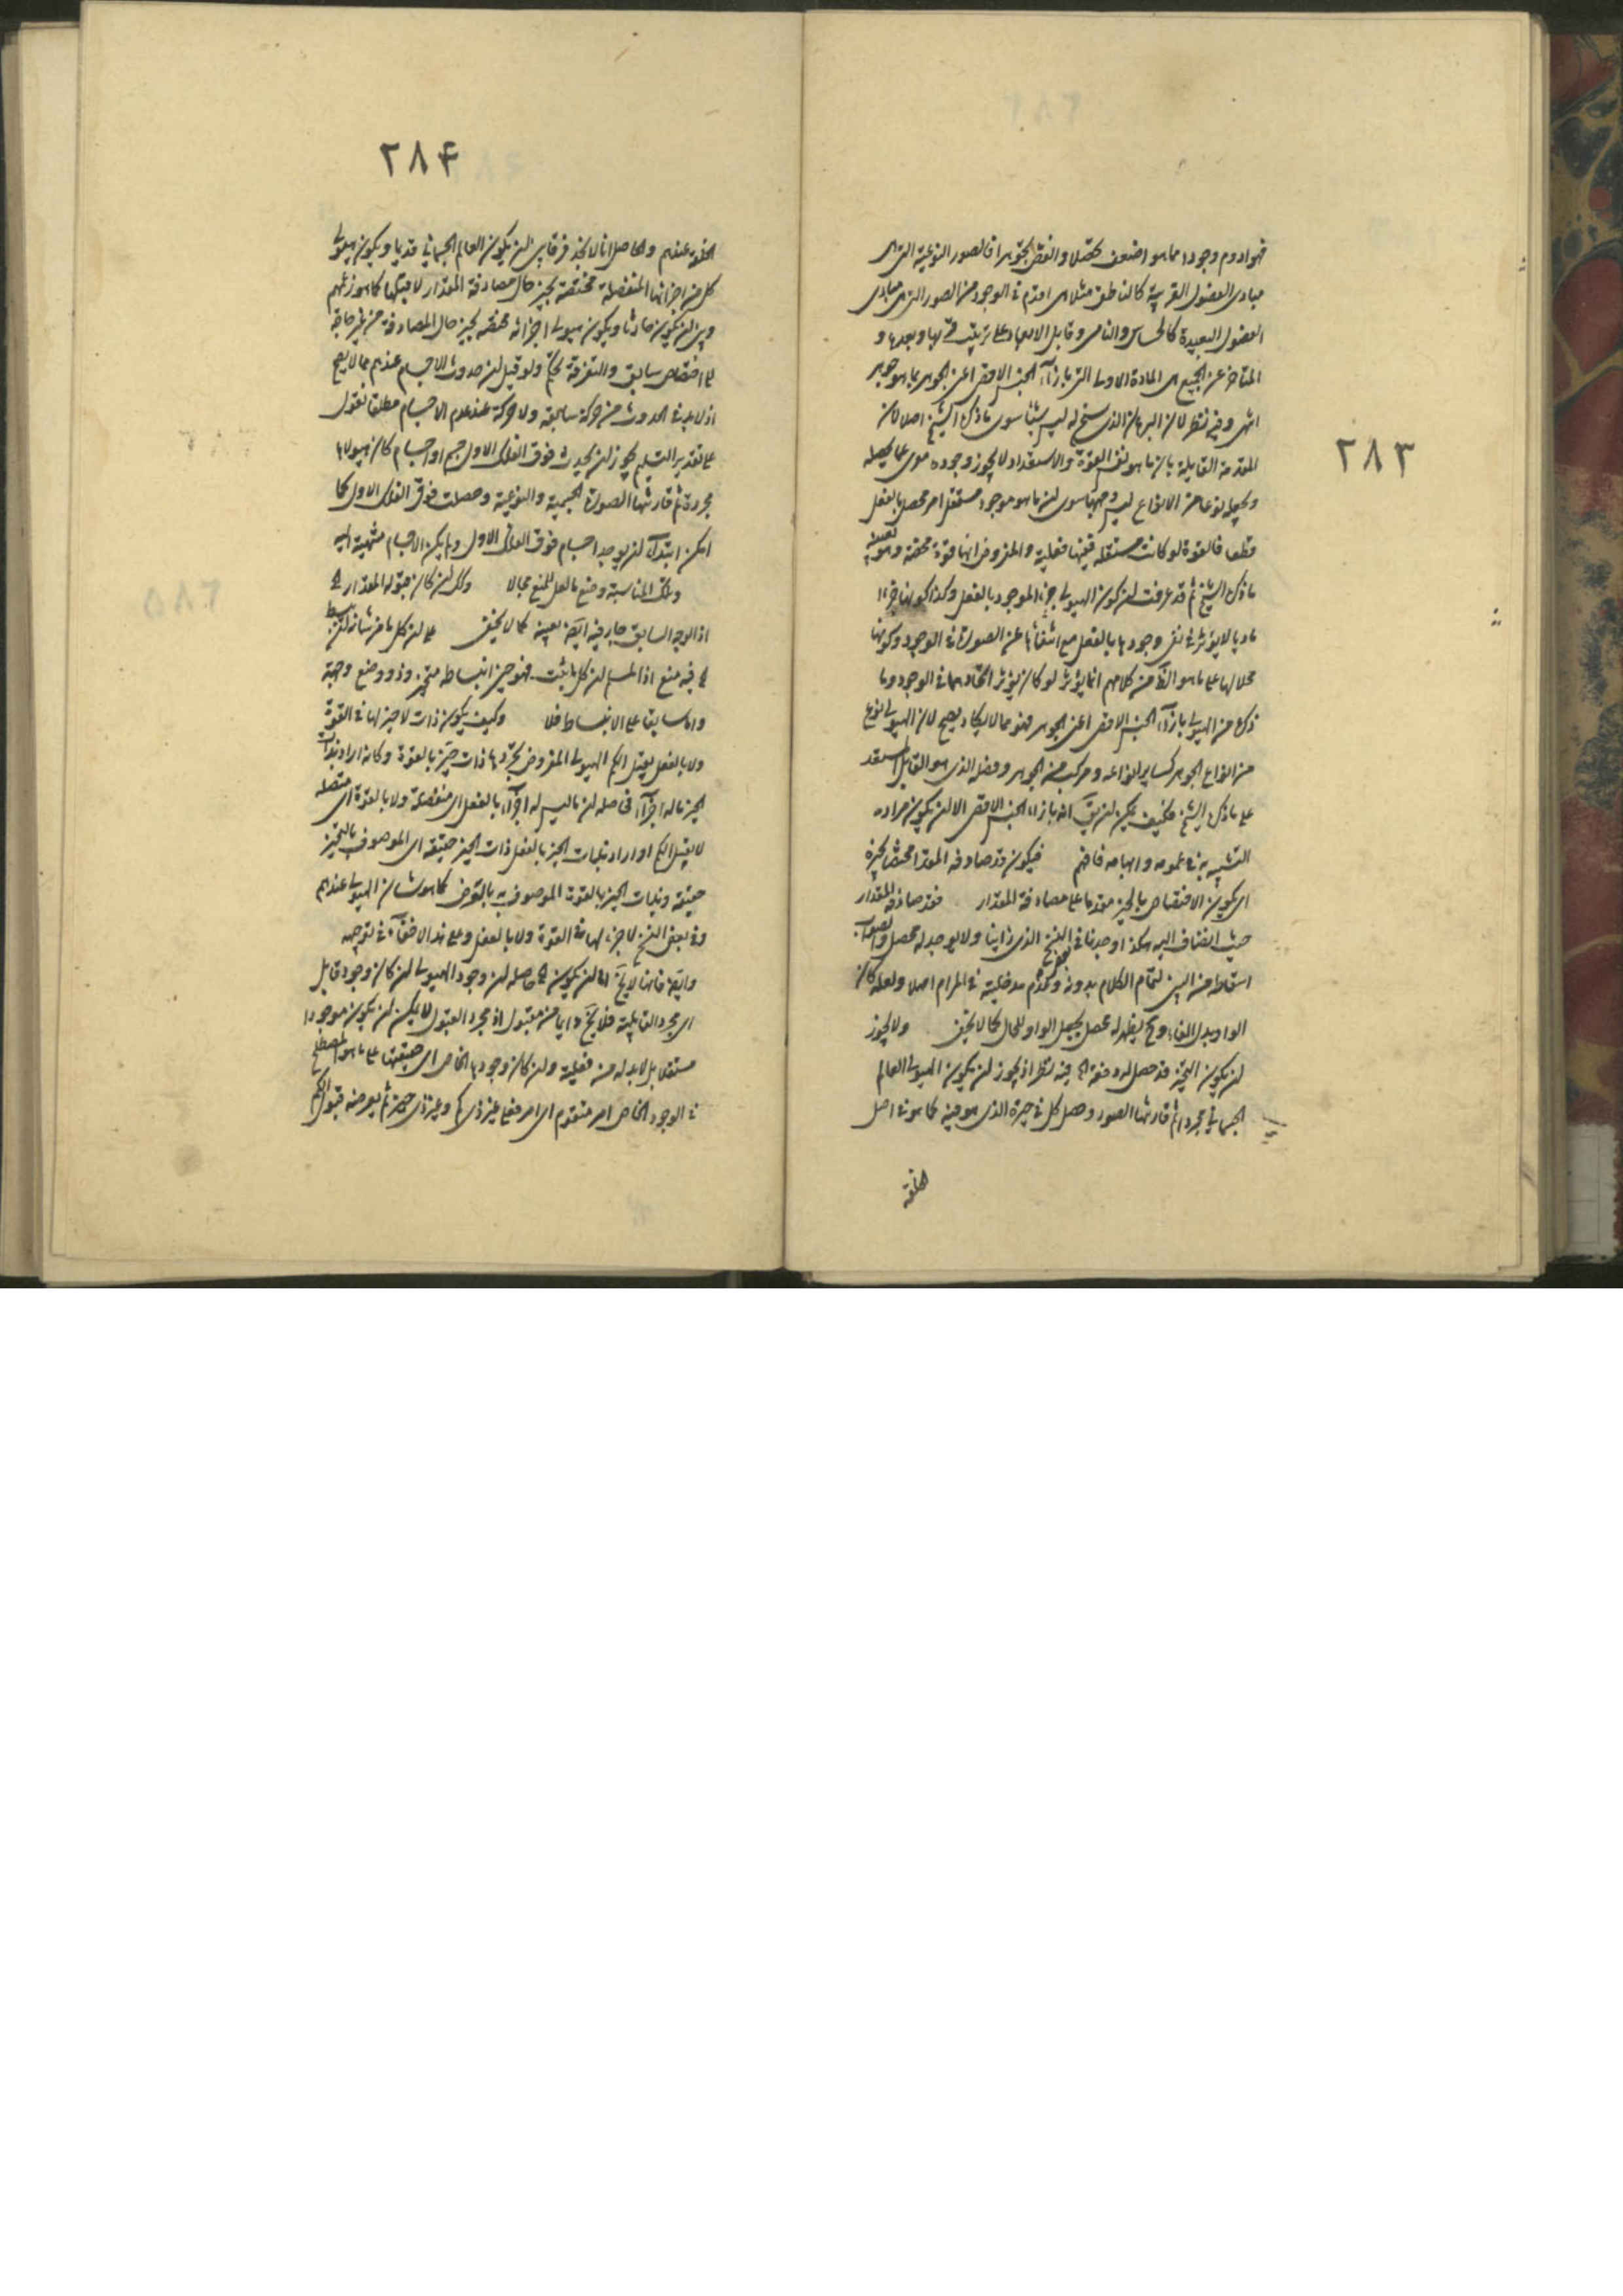 ٢٨٣
فهو ادوم وجودا مما هو اضعف تحصلا وانقص تجوهرا فالصور النوعية التى هى
مبادى الفصول القريبة كالناطق مثلا هى اقدم فى الوجود من الصور التى هى مبادى
الفصول البعيدة كالحساس والنامى وقابل الابعاد على ترتيب فى قربها وبعدها و
المتاخر عن الجميع هى المادة الاولى التى بازاء الجنس الاقصى اعنى الجوهر بما هو جوهر
انتهى وفيه نظر لان البرهان الذى سنح له ليس شيئا سوى ما ذكره الشيخ اصلا لان
المقدمة القايلة بان ما هو نفس القوة والاستعداد لا يجوز وجوده معرى عما يحصله
ويجعله نوعا من الانواع ليس وجهها سوى ان ما هو موجود مستقل امر محصل بالفعل
قطعا فالقوة لو كانت مستقلة فيها فعلية والمفروض انها قوة محضة وهو بعينه
ما ذكره الشيخ ثم قد عرفت ان كون الهيولى جزءا لموجود بالفعل وكذا كونها جزءا
ماديا لا يؤثر فى نفى وجودها بالفعل مع انتفائها عن الصورة فى الوجود وكونها
محلا لها على ما هو الظ من كلامهم انما يؤثر لو كان يؤثر اتحادهما فى الوجود وما
ذكره من الهيولى بازاء الجنس الاقصى اعنى الجوهر فهو مما لا يكاد يصح لان الهيولى نوع
من انواع الجوهر كساير انواعه ومركب من الجوهر وفصله الذى هو القابل المستعد
على ما ذكره الشيخ فكيف يمكن ان يق انه بازاء الجنس الاقصى الا ان يكون مراده
التشبيه به فى عمومه وابهامه فافهم فيكون قد صادفه المقدار مختصا بحيزه
اى يكون الاختصاص بالحيز مقدما على مصادفة المقدار فقد صادفه المقدار
حيث انضاف اليه هكذا وجدنا فى النسخ الذى رايناه ولا يوجد له محصل والصواب
اسقاطه من البين لتمام الكلام بدونه وعدم مدخليته فى المرام اصلا ولعله كان
الواو بدل الفاء وح يظهر له محصل بجعل الواو للحال كما لا يخفى ولا يجوز
ان يكون التحيز قد حصل له دفعة اه فيه نظر اذ يجوز ان يكون الهيولى العالم
الجسمانى مجردا ثم قارنتها الصور وحصل كل فى حيزه الذى هو فيه كما هو فى اصل
الخلقة
٢٨۴
الخلقة عندهم والحاصل انا لا نجد فرقا بين ان يكون العالم الجسمانى قديما ويكون هيولى
كل من اجزائها المنفصلة مختصة بحيز حال مصادفة المقدار لا قبلها كما هو زعمهم
وبين ان يكون حادثا ويكون هيولى اجزائه مختصة بحيز حال المصادفة من غير حاجة
الى اختصاص سابق والتفرقة تحكم ولو قيل ان حدوث الاجسام عندهم مما لا يصح
اذ لا بد فى الحدوث من حركة سابقة ولا حركة عند عدم الاجسام مطلقا نقول
على تقدير التسليم يجوز ان يحدث فوق الفلك الاول جسم او اجسام كان هيولاها
مجردة ثم قارنتها الصورة الجسمية والنوعية وحصلت فوق الفلك الاول كما
امكن ابتداء ان يوجد اجسام فوق الفلك الاول ولم يكن الاجسام منتهية اليه
وتلك المناسبة وضع ما لعل للمنع مجالا وكل ان كان قبوله المقدار اه
اذ الوجه السابق جار فيه ايضا بعينه كما لا يخفى على ان كل ما من شانه ان ينبسط
اه فيه منع اذ المسلم ان كل ما يثبت فهو حين انبساطه متحيز وذو وضع وجهة
واما سابقا على الانبساط فلا وكيف يكون ذات لا حيز لها فى القوة
ولا بالفعل يقبل الكم الهيولى المفروض تجردها ذات حيز بالقوة وكانه اراد بذات
الحيز ما له اجزاء فحاصله ان ما ليس له اجزاء بالفعل اى منفصلة ولا بالقوة اى متصلة
لا يقبل الكم او اراد بذات الحيز بالفعل ذات الحيز حقيقة اى الموصوف بالتحيز
حقيقة وبذات الحيز بالقوة الموصوف به بالعرض كما هو شان الهيولى عندهم
وفى بعض النسخ لا جزء لها فى القوة ولا بالفعل وعلى هذا لا خفاء فى توجهه
وايضا فانها لا يخ اما ان يكون اه حاصله ان وجود الهيولى ان كان وجود قابل
اى مجرد القابلية فلا يخ دائما من مقبول اذ مجرد القبول لا يمكن ان يكون موجودا
مستقلا بل لا بد له من فعلية وان كان وجودها الخاص اى حقيقتها على ما هو المصطلح
فى الوجود الخاص امر متقوم اى امر فعلى غير ذى كم وغير ذى حيز ثم يعرضه قبول الكم